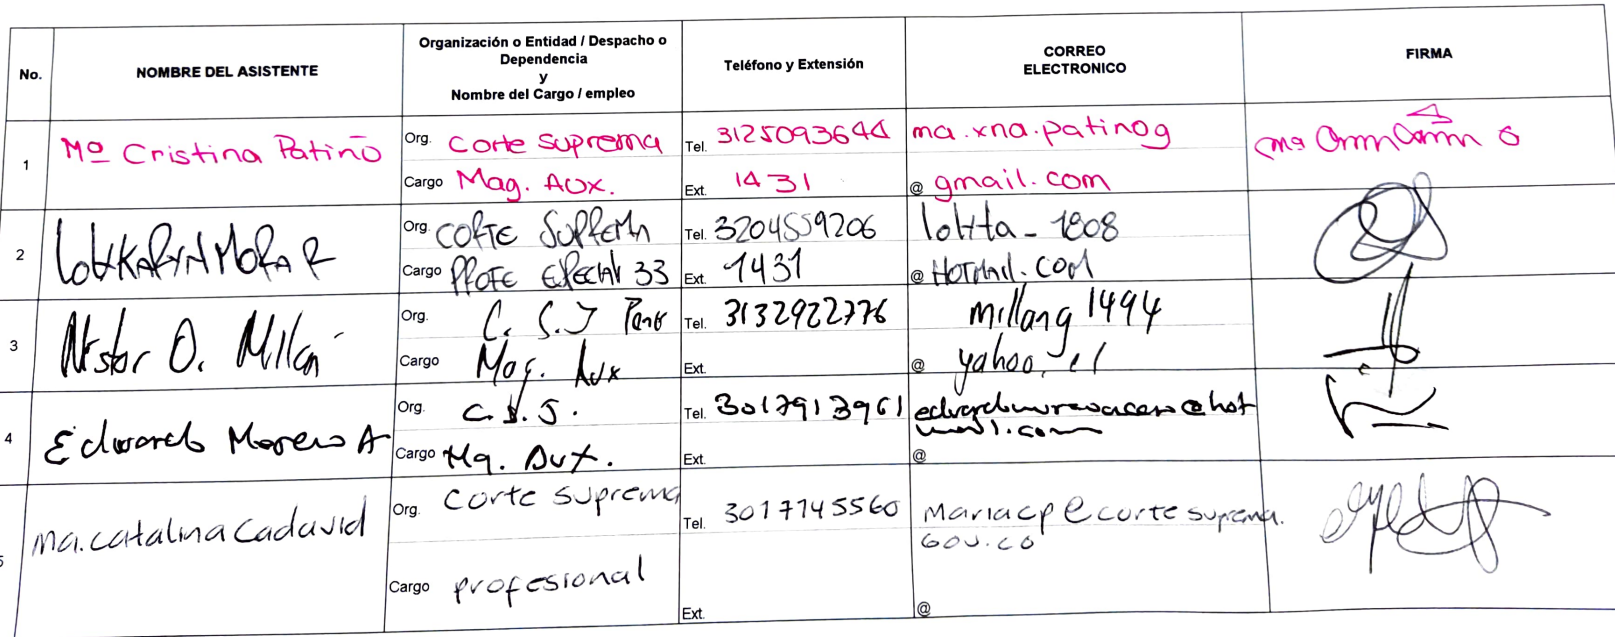 No.
NOMBRE DEL ASISTENTE
Organización o Entidad / Despacho o
Dependencia
y
Nombre del Cargo / empleo
Teléfono y Extensión
CORREO
ELECTRONICO
FIRMA
1
Mª Cristina Patiño
Org. Corte Suprema
Cargo Mag. Aux.
Tel. 3125093644
Ext. 1431
ma.xna.patinog
@ gmail.com
2
MORA R
Org. CORTE SUPREMA
Cargo 33
Tel. 3204559206
Ext. 1431
lolita_1808
@ HOTMAIL.COM
3
Néstor O. Millán
Org. C. S. J
Cargo Mag. Aux
Tel. 3132922776
Ext.
millang1494
@ yahoo.
4
Eduardo Moreno A
Org. C.S.J.
Cargo Mg. Aux.
Tel. 3017913961
Ext.
@hot
mail.com
@
5
Ma. Catalina Cadavid
Org. Corte suprema
Cargo profesional
Tel. 3017745560
Ext.
Mariacp@cortesuprema.
GOV.CO
@